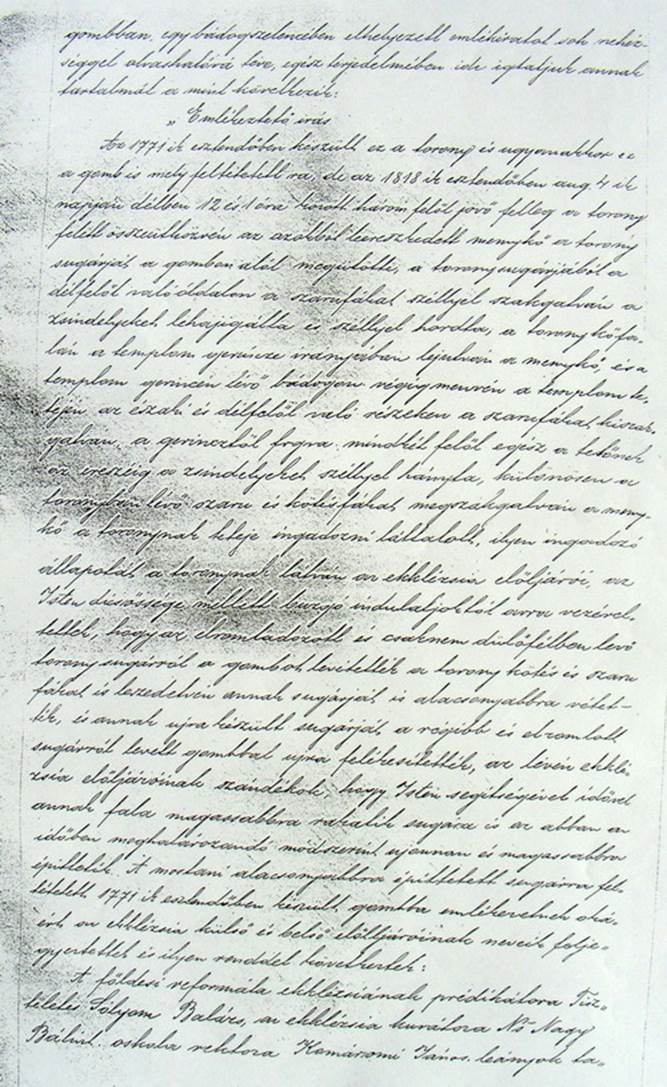 gombban, egy bádogszelencében elhelyezett emlékiratot sok nehéz-
séggel olvashatóvá téve, egész terjedelmében ide igtatjuk annak
tartalmát a mint következik:
„Emlékeztető írás
Az 1771 ik esztendőben készült ez a torony és ugyanakkor ez
a gomb is mely feltétetett rá, de az 1818 ik esztendőben aug. 4 ik
napján délben 12 és 1 óra között három felől jövő felleg a torony
felett összeütközvén az azokból leereszkedett menykő a torony
sugárját a gombon alól megütötte, a torony sugárjából a
délfelől való oldalon a szarufákat széllyel szakgatván a
zsindelyeket lehajigálta és széllyel hordta, a torony kőfa-
lán a templom gerincze irányában lejutván a menykő, és a
templom gerincén lévő bádogon végigmenvén a templom te-
tején az északi és délfelől való részeken a szarufákat kiszak-
gatván, a gerincztől fogva mindkét felől egész a tetőnek
az ereszéig a zsindelyeket széllyel hányta, különösen a
toronyban lévő szaru és kötésfákat megszakgatván a meny-
kő a toronynak teteje ingadozni láttatott, ilyen ingadozó
állapotát a toronynak látván az ekklézsia előljárói, az
Isten dicsőssége mellett buzgó indulatjoktól arra vezérel-
tettek, hogy az elromladozott és csaknem dülőfélben levő
torony sugárról a gombot levétették a torony kötés és szaru
fákat is leszedetvén annak sugárját is alacsonyabbra vétet-
ték, és annak ujra készült sugárját a régibb és elromlott
sugárról levett gombbal ujra felékesítették, az lévén ekklé-
zsia előljáróinak szándékok, hogy Isten segítségével idővel
annak fala magassabbra rakatik sugára is az abban az
időben meghatározandó módszerint ujonnan és magassabbra
építtetik. A mostani alacsonyabbra építtetett sugárra fel-
tétetett 1771 ik esztendőben készült gombba emlékezetnek oká-
ért az ekklézsia külső és belső előlljáróinak neveik felje-
gyeztettek és ilyen renddel következtek:
A földesi reformáta ekklézsiának prédikátora Tisz-
teletes Sólyom Balázs, az ekklézsia kurátora Ns Nagy
Bálint. oskola rektora Komáromi János. leányok ta-